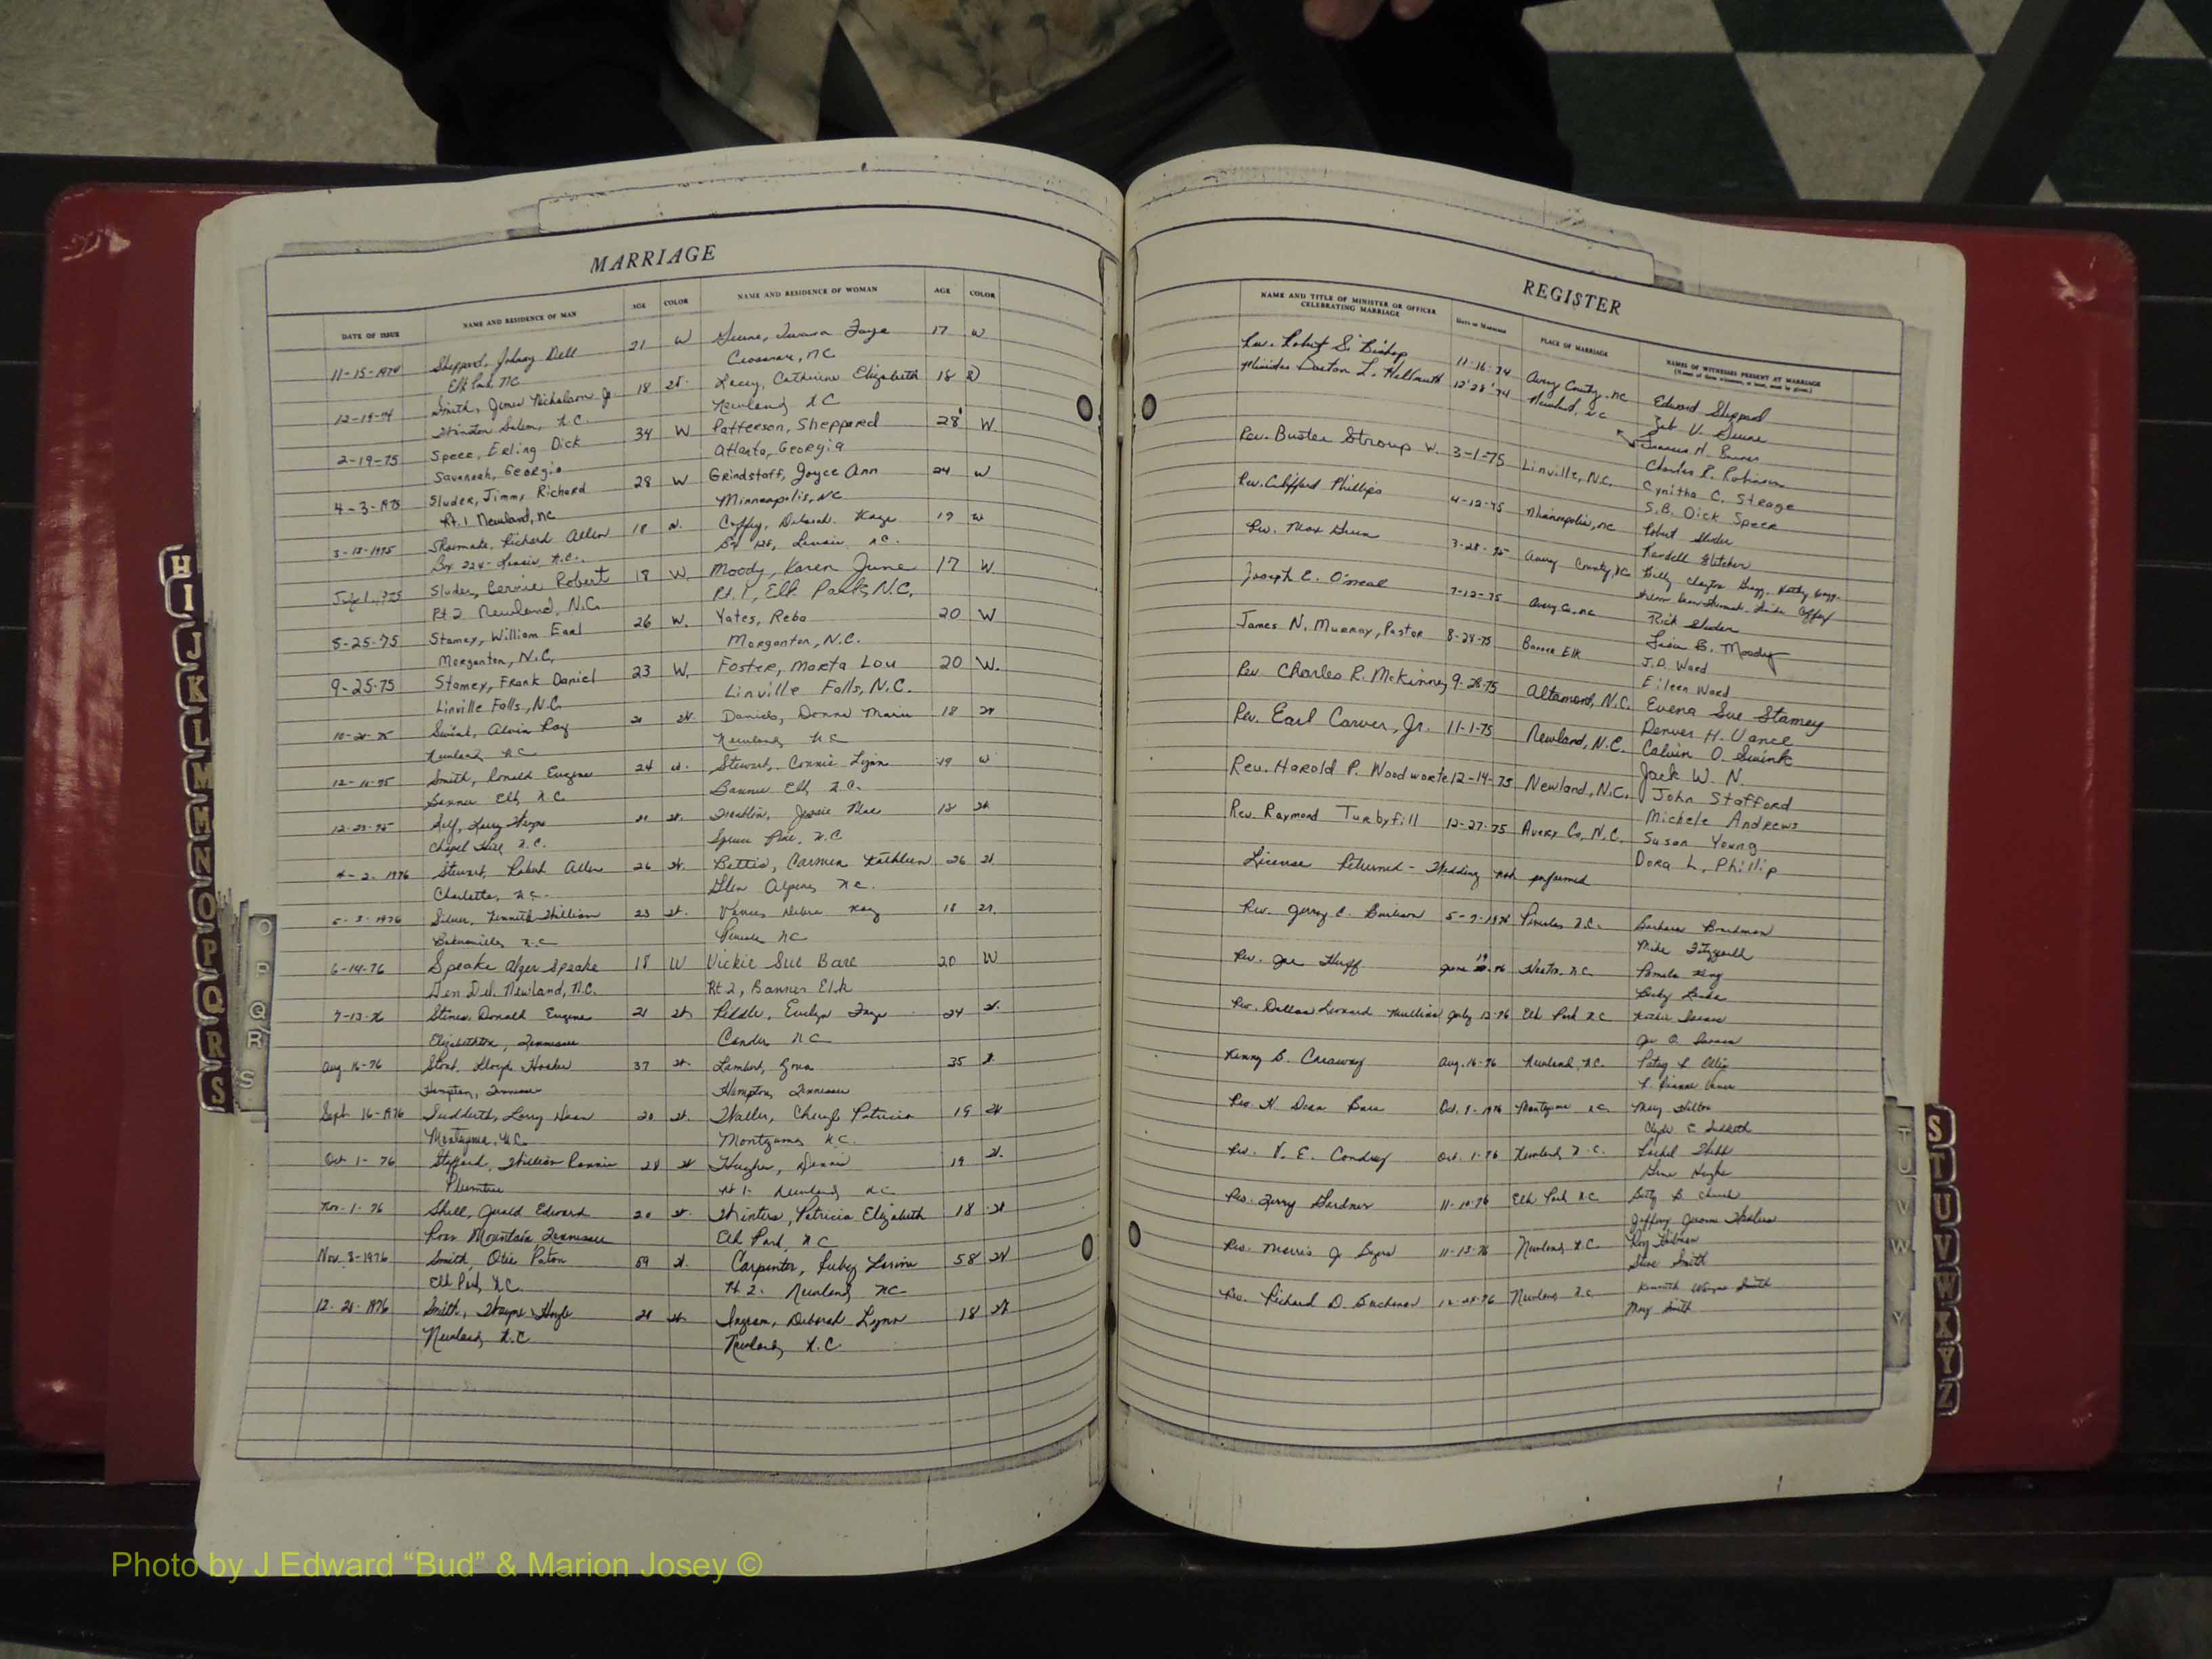 MARRIAGE
DATE OF ISSUE NAME AND RESIDENCE OF MAN AGE COLOR NAME AND RESIDENCE OF WOMAN AGE COLOR
11-15-1974 Sheppard, Johnny Dell 21 W Faye 17 W
Elk Park, NC Crossnore, NC
12-19-74 Smith, James Nicholson Jr. 18 W. Lacey, Catherine Elizabeth 18 W
Winston Salem, N.C. Newland, N C
2-19-75 Spece, Erling Dick 34 W Patterson, Sheppard 28 W.
Savannah, Georgia Atlanta, Georgia
4-3-1975 Sluder, Jimmy Richard 28 W Grindstaff, Joyce Ann 24 W
Rt. 1 Newland, NC Minneapolis, NC
3-18-1975 Shoemake, Richard Allen 18 W. Coffey, Deborah Kaye 19 W
Box 224- Lenoir N.C. Box 128, Lenoir N.C.
July 1, 1975 Sluder, Bernie Robert 18 W. Moody, Karen June 17 W
Rt 2 Newland, N.C. Rt. 1, Elk Park, N.C.
8-25-75 Stamey, William Earl 26 W. Yates, Reba 20 W
Morganton, N.C. Morganton, N.C.
9-25-75 Stamey, Frank Daniel 23 W. Foster, Marta Lou 20 W.
Linville Falls, N.C. Linville Falls, N.C.
Swink, Alvin Ray 21 W. Daniels, Donna Marie 18 W
Newland, N.C. Newland, N C
12-11-75 Smith, Ronald Eugene 24 W. Stewart, Connie Lynn 19 W
Banner Elk N.C. Banner Elk, N.C.
12-23-75 Self, Larry Wayne 21 W. Franklin, Jessie Mae 18 W
Chapel Hill N.C. Spruce Pine, N.C
4-2-1976 Stewart, Robert Allen 26 W. Bettis, Carmen Kathleen 26 W
Charlotte, N.C. Glen Alpine, N.C.
5-3-1976 Silver, Kenneth William 23 W. Vance, Debra Kay 18 W.
Bakersville, N.C Pineola NC
6-14-76 Speake Alger Speake 18 W Vickie Sue Bare 20 W
Gen Del. Newland, N.C. Rt 2, Banner Elk
7-13-76 Stines, Donald Eugene 21 W Riddle, Evelyn Faye 24 W.
Elizabethton, Tennessee Candler N C
Aug 16-76 Stout, Lloyd 37 W. Lambert, 35 W.
Hampton, Tennessee Hampton, Tennessee
Sept. 16-1976 Sudderth, Larry Dean 20 W. Waller, Cheryl Patricia 19 W
Montezuma, N.C. Montezuma N.C.
Oct 1-76 Stafford, William Ronnie 28 W Hughes, 19 W.
Plumtree Rt 1- Newland N.C.
Nov. 1-76 Shell, Gerald Edward 20 W. Winters, Patricia Elizabeth 18 W
Roan Mountain Tennessee Elk Park, N C
Nov. 8-1976 Smith, Otis Paton 59 W. Carpenter, Ruby 58 W
Elk Park, N.C. Rt 2. Newland, N.C
12-21-1976 Smith, Wayne Hoyle 21 W. Ingram, Deborah Lynn 18 W
Newland, N.C Newland, N.C
REGISTER
NAME AND TITLE OF MINISTER OR OFFICER CELEBRATING MARRIAGE DATE OF MARRIAGE PLACE OF MARRIAGE NAMES OF WITNESSES PRESENT AT MARRIAGE
Rev. Robert S. Bishop 11-16-74 Avery County, NC Edward Sheppard
Minister L. 12-28-74 Newland, NC Zeb V.
Charles R. Robinson
Rev. Buster Stroup W. 3-1-75 Linville, N.C. Cynitha C. Steage
S.B. Dick Spece
Rev. Clifford Phillips 4-12-75 Minneapolis, NC Robert Sluder
Rev. Max Green 3-28-75 Avery County, NC Billy Clayton Gragg, Kathy Gragg
Joseph C. O'neal 7-12-75 Avery Co. NC Rick Sluder
B. Moody
James N. Murray, Pastor 8-24-75 Banner Elk J.D. Ward
Eileen Ward
Rev. Charles R. McKinney 9-28-75 Altamont, N.C. Evena Sue Stamey
Denver H. Vance
Rev. Earl Carver, Jr. 11-1-75 Newland, N.C. Calvin O. Swink
Jack W. N.
Rev. Harold P. Woodworte 12-14-75 Newland, N.C. John Stafford
Michele Andrews
Rev. Raymond Turbyfill 12-27-75 Avery Co, N.C. Susan Young
Dora L. Phillip
License Returned - Wedding not performed
Rev. Jerry C. Burleson 5-7-1976 Pineola N.C. Barbara Boardman
Mike Fitzgerald
Rev. Joe Huff June 19 76 N.C. Pamela King
Becky
Rev. Dallas Leonard Mullins July 13-76 Elk Park N.C
Kenny B. Creaway Aug. 16-76 Newland, N.C. Patsy L Ollis
Rev. K Dean Bare Oct. 9-1976 Montezuma N.C. Mary Hilton
Clyde C Sudderth
Rev. V. E. Condrey Oct. 1-76 Newland, N.C. Rachel Webb
Hughes
Rev. Gardner 11-10-76 Elk Park N.C Betty B Church
Jeffery Jerome
Rev. Morris J. Byers 11-13-76 Newland, N.C
Steve Smith
Rev. Richard D. Buchanan 12-24-76 Newland N.C Kenneth Wayne Smith
Mary Smith
H
I
J
K
L
M
M
N
O
P
Q
R
S
O
P
Q
R
S
T
U
V
W
Y
S
T
U
V
W
X
Y
Z
Photo by J Edward “Bud” & Marion Josey ©